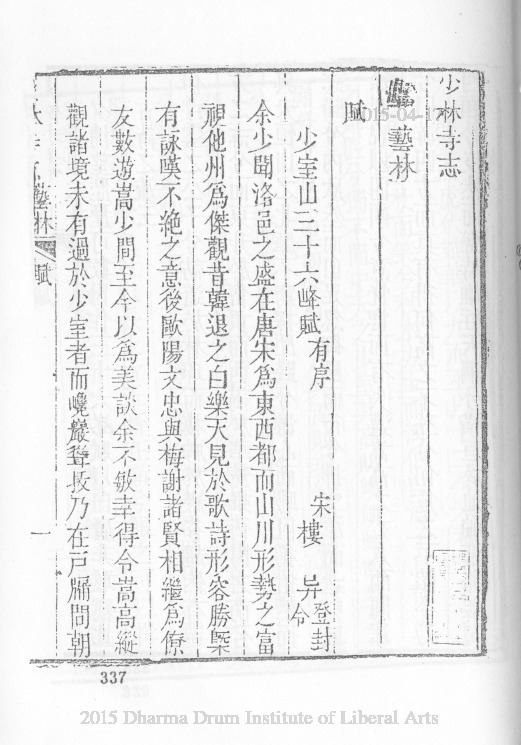 少林寺志
藝林
賦
少室山三十六峰賦有序 宋樓异登封令
余少聞洛邑之盛在唐宋為東西都而山川形勢之富
視他州為傑觀昔韓退之白樂天見於歌詩形容勝槩
有詠嘆不絶之意後歐陽文忠與梅謝諸賢相繼為僚
友數遊嵩少間至今以為美談余不敏幸得令嵩高縱
觀諸境未有過於少室者而巉巖聳拔乃在戶牖間朝
藝林 賦 一
2015-04-17
337
2015 Dharma Drum Institute of Liberal Arts